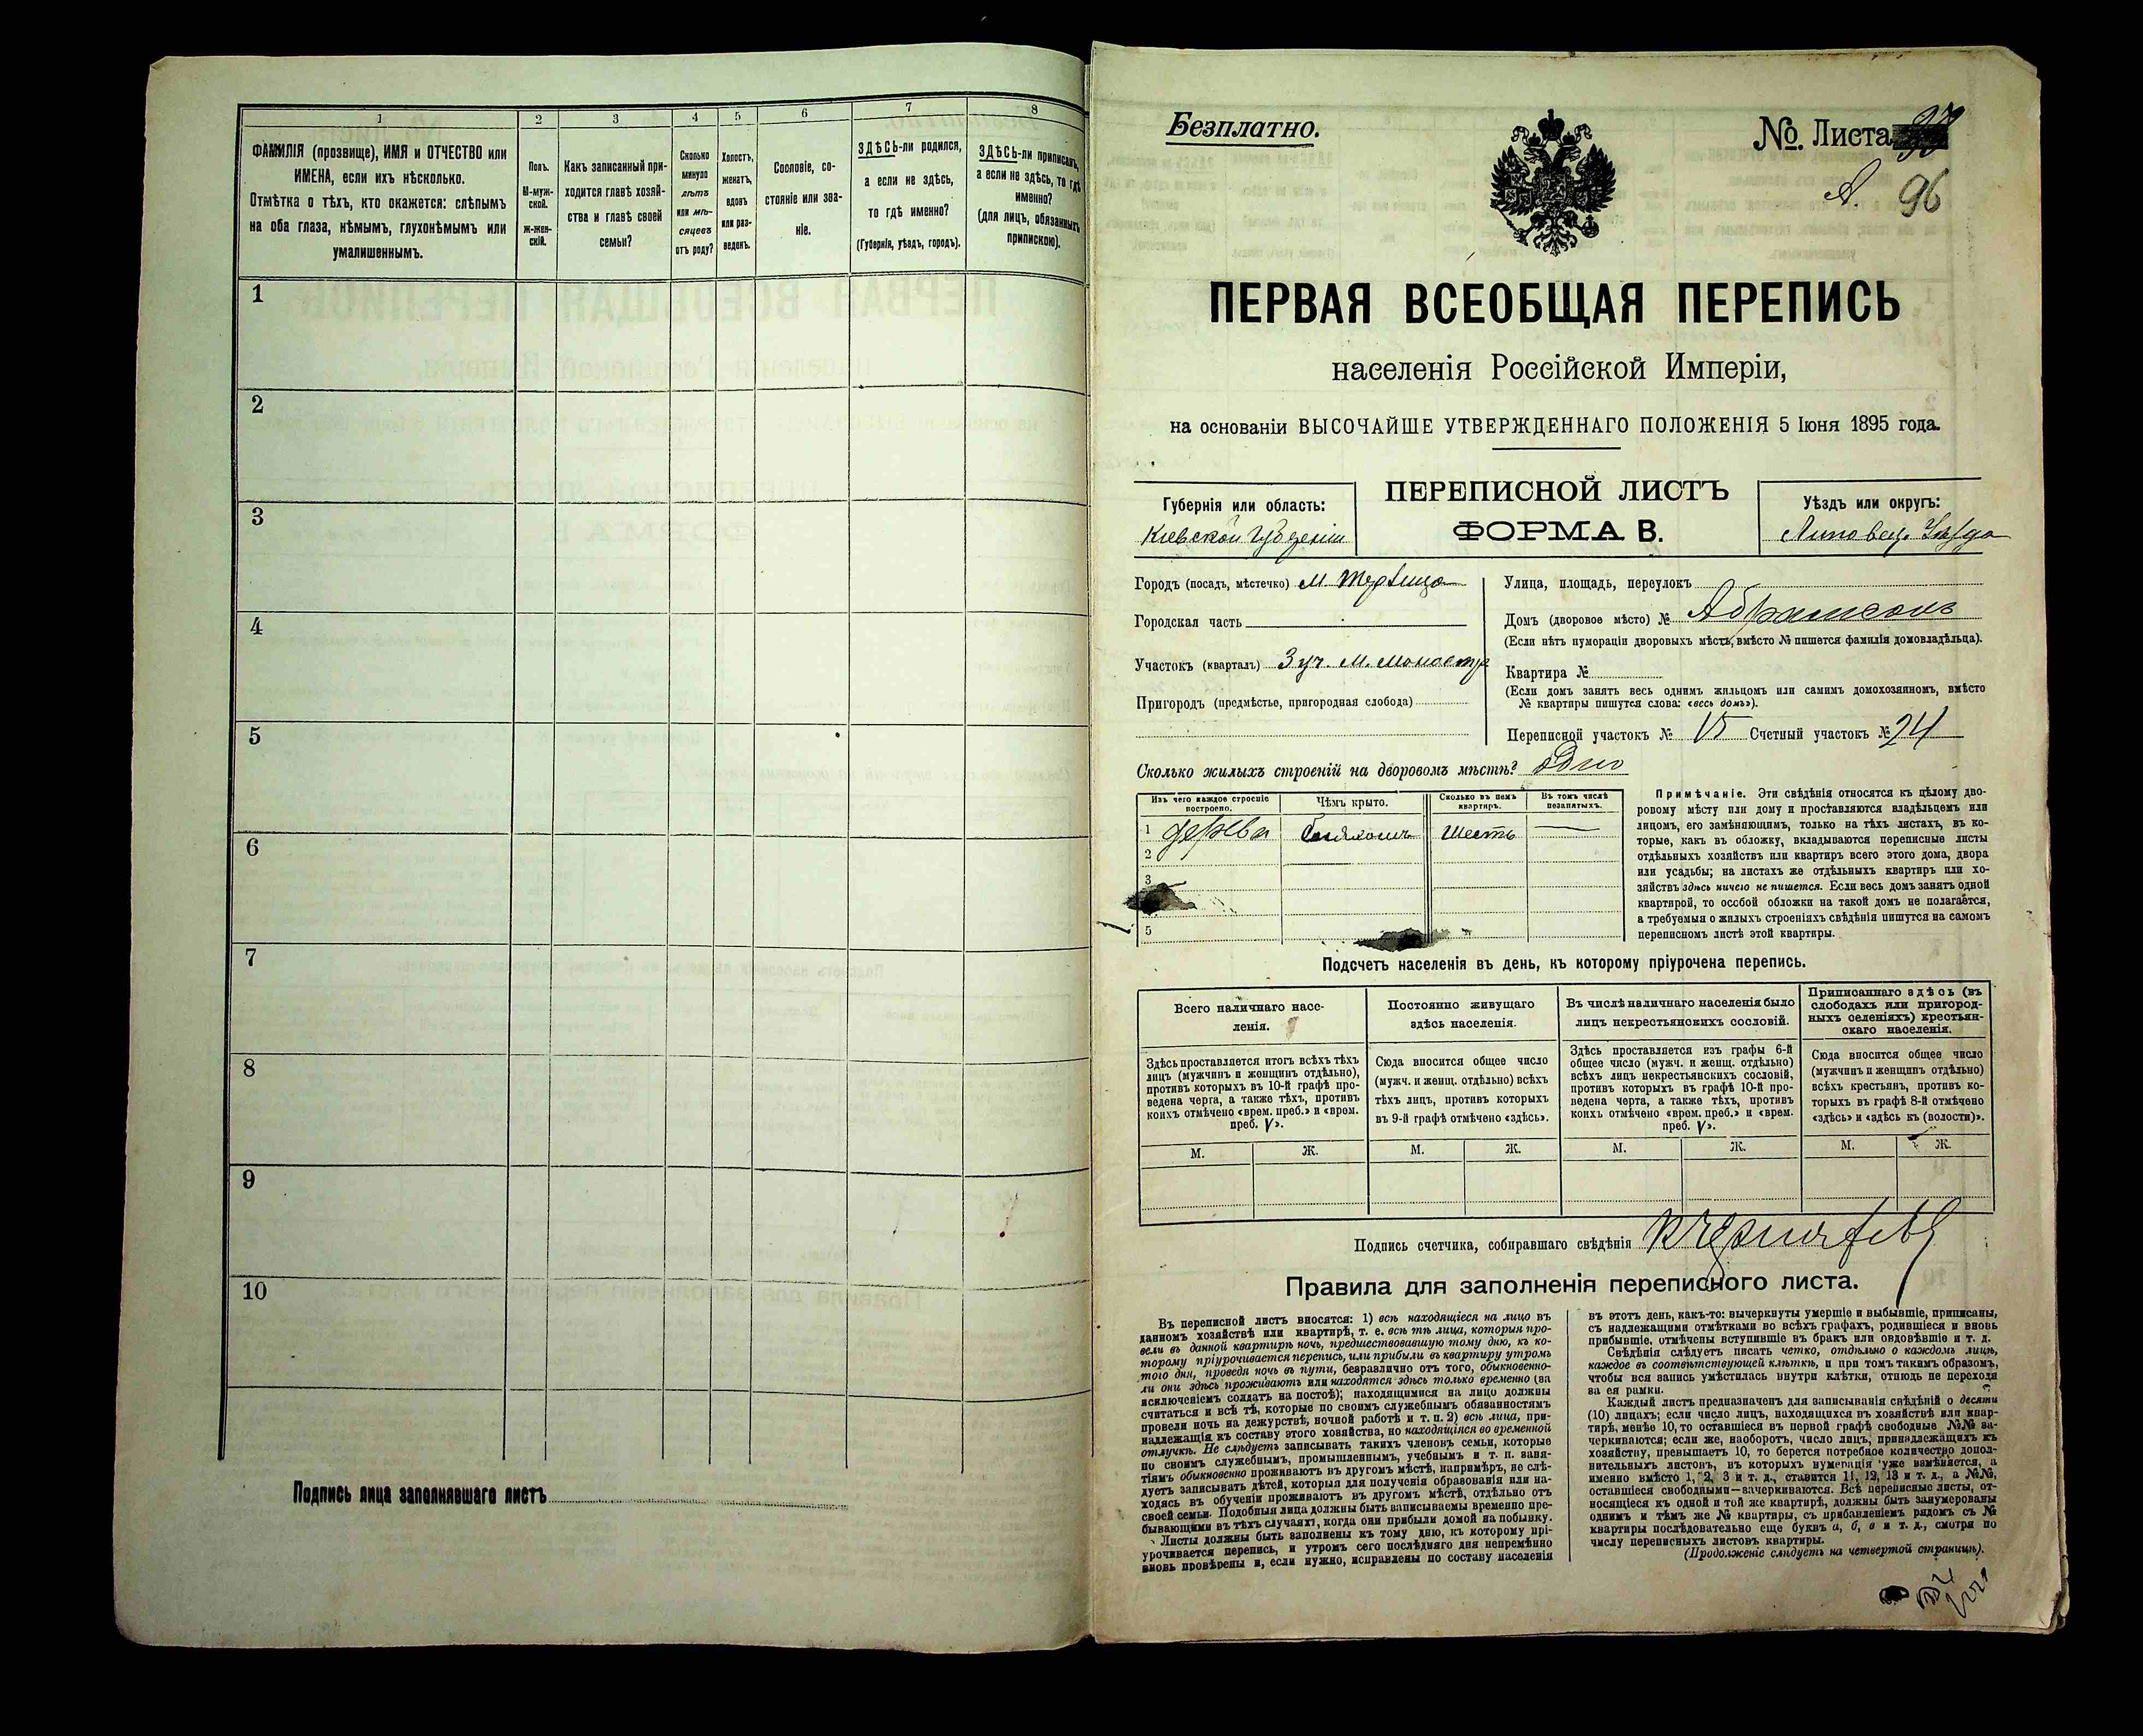 1
2
3
4
5
6
7
8
ФАМИЛІЯ (прозвище), ИМЯ и ОТЧЕСТВО или
ИМЕНА, если ихъ нѣсколько.
Отмѣтка о тѣхъ, кто окажется: слѣпымъ
на оба глаза, нѣмымъ, глухонѣмымъ или
умалишеннымъ.
Полъ.
М-муж-
ской.
Ж-жен-
скій.
Какъ записанный при-
ходится главѣ хозяй-
ства и главѣ своей
семьи?
Сколько
минуло
лѣтъ
или мѣ-
сяцевъ
отъ роду?
Холостъ,
женатъ,
вдовъ
или раз-
веденъ.
Сословіе, со-
стояніе или зва-
ніе.
ЗДѢСЬ-ли родился,
а если не здѣсь,
то гдѣ именно?
(Губернія, уѣздъ, городъ).
ЗДѢСЬ-ли приписанъ,
а если не здѣсь, то гдѣ
именно?
(для лицъ, обязанныхъ
припискою).
1
2
3
4
5
6
7
8
9
10
Подпись лица заполнявшаго листъ
Безплатно.
№. Листа
96
ПЕРВАЯ ВСЕОБЩАЯ ПЕРЕПИСЬ
населенія Россійской Имперіи,
на основаніи ВЫСОЧАЙШЕ УТВЕРЖДЕННАГО ПОЛОЖЕНІЯ 5 Іюня 1895 года.
Губернія или область:
Кіевской Губерніи
ПЕРЕПИСНОЙ ЛИСТЪ
ФОРМА В.
Уѣздъ или округъ:
Липовец. Уѣзда
Городъ (посадъ, мѣстечко) м.
Городская часть
Участокъ (кварталъ) 3 уч. м. Монастр
Пригородъ (предмѣстье, пригородная слобода)
Улица, площадь, переулокъ
Домъ (дворовое мѣсто) №
(Если нѣтъ нумораціи дворовыхъ мѣстъ, вмѣсто № пишется фамилія домовладѣльца).
Квартира №
(Если домъ занятъ весь однимъ жильцомъ или самимъ домохозяиномъ, вмѣсто
№ квартиры пишутся слова: «весь домъ»).
Переписной участокъ № Счетный участокъ № 24
Сколько жилыхъ строеній на дворовомъ мѣстѣ? Одно
Изъ чего каждое строеніе
построено.
Чѣмъ крыто.
Сколько въ немъ
квартиръ.
Въ томъ числѣ
незанятыхъ.
1 шесть
2
3
5
Примѣчаніе. Эти свѣдѣнія относятся къ цѣлому дво-
ровому мѣсту или дому и проставляются владѣльцемъ или
лицомъ, его замѣняющимъ, только на тѣхъ листахъ, въ ко-
торые, какъ въ обложку, вкладываются переписные листы
отдѣльныхъ хозяйствъ или квартиръ всего этого дома, двора
или усадьбы; на листахъ же отдѣльныхъ квартиръ или хо-
зяйствъ здѣсь ничего не пишется. Если весь домъ занятъ одной
квартирой, то особой обложки на такой домъ не полагается,
а требуемыя о жилыхъ строеніяхъ свѣдѣнія пишутся на самомъ
переписномъ листѣ этой квартиры.
Подсчетъ населенія въ день, къ которому пріурочена перепись.
Всего наличнаго насе-
ленія.
Постоянно живущаго
здѣсь населенія.
Въ числѣ наличнаго населенія было
лицъ некрестьянскихъ сословій.
Приписаннаго здѣсь (въ
слободахъ или пригород-
ныхъ селеніяхъ) крестьян-
скаго населенія.
Здѣсь проставляется итогъ всѣхъ тѣхъ
лицъ (мужчинъ и женщинъ отдѣльно),
противъ которыхъ въ 10-й графѣ про-
ведена черта, а также тѣхъ, противъ
коихъ отмѣчено «врем. преб.» и «врем.
преб. V».
Сюда вносится общее число
(мужч. и женщ. отдѣльно) всѣхъ
тѣхъ лицъ, противъ которыхъ
въ 9-й графѣ отмѣчено «здѣсь».
Здѣсь проставляется изъ графы 6-й
общее число (мужч. и женщ. отдѣльно)
всѣхъ лицъ некрестьянскихъ сословій,
противъ которыхъ въ графѣ 10-й про-
ведена черта, а также тѣхъ, противъ
коихъ отмѣчено «врем. преб.» и «врем.
преб. V».
Сюда вносится общее число
(мужчинъ и женщинъ отдѣльно)
всѣхъ крестьянъ, противъ ко-
торыхъ въ графѣ 8-й отмѣчено
«здѣсь» и «здѣсь къ (волости)».
М. Ж. М. Ж. М. Ж. М. Ж.
Подпись счетчика, собиравшаго свѣдѣнія
Правила для заполненія переписного листа.
Въ переписной листъ вносятся: 1) всѣ находящіеся на лицо въ
данномъ хозяйствѣ или квартирѣ, т. е. всѣ тѣ лица, которыя про-
вели въ данной квартирѣ ночь, предшествовавшую тому дню, къ ко-
торому пріурочивается перепись, или прибыли въ квартиру утромъ
того дня, проведя ночь въ пути, безразлично отъ того, обыкновенно-
ли они здѣсь проживаютъ или находятся здѣсь только временно (за
исключеніемъ солдатъ на постоѣ); находящимися на лицо должны
считаться и всѣ тѣ, которые по своимъ служебнымъ обязанностямъ
провели ночь на дежурствѣ, ночной работѣ и т. п. 2) всѣ лица, при-
надлежащія къ составу этого хозяйства, но находящіяся во временной
отлучкѣ. Не слѣдуетъ записывать такихъ членовъ семьи, которые
по своимъ служебнымъ, промышленнымъ, учебнымъ и т. п. заня-
тіямъ обыкновенно проживаютъ въ другомъ мѣстѣ, напримѣръ, не слѣ-
дуетъ записывать дѣтей, которыя для полученія образованія или на-
ходясь въ обученіи проживаютъ въ другомъ мѣстѣ, отдѣльно отъ
своей семьи. Подобныя лица должны быть записываемы временно пре-
бывающими въ тѣхъ случаяхъ, когда они прибыли домой на побывку.
Листы должны быть заполнены къ тому дню, къ которому прі-
урочивается перепись, и утромъ сего послѣдняго дня непремѣнно
вновь провѣрены и, если нужно, исправлены по составу населенія
въ этотъ день, какъ-то: вычеркнуты умершіе и выбывшіе, приписаны,
съ надлежащими отмѣтками во всѣхъ графахъ, родившіеся и вновь
прибывшіе, отмѣчены вступившіе въ бракъ или овдовѣвшіе и т. д.
Свѣдѣнія слѣдуетъ писать четко, отдѣльно о каждомъ лицѣ,
каждое въ соотвѣтствующей клѣткѣ, и при томъ такимъ образомъ,
чтобы вся запись умѣстилась внутри клѣтки, отнюдь не переходя
за ея рамки.
Каждый листъ предназначенъ для записыванія свѣдѣній о десяти
(10) лицахъ; если число лицъ, находящихся въ хозяйствѣ или квар-
тирѣ, менѣе 10, то оставшіеся въ первой графѣ свободные №№ за-
черкиваются; если же, наоборотъ, число лицъ, принадлежащихъ къ
хозяйству, превышаетъ 10, то берется потребное количество допол-
нительныхъ листовъ, въ которыхъ нумерація уже измѣняется, а
именно вмѣсто 1, 2, 3 и т. д., ставится 11, 12, 13 и т. д., а №№,
оставшіеся свободными—зачеркиваются. Всѣ переписные листы, от-
носящіеся къ одной и той же квартирѣ, должны быть занумерованы
однимъ и тѣмъ же № квартиры, съ прибавленіемъ рядомъ съ №
квартиры послѣдовательно еще буквъ а, б, в и т. д., смотря по
числу переписныхъ листовъ квартиры.
(Продолженіе слѣдуетъ на четвертой страницѣ).